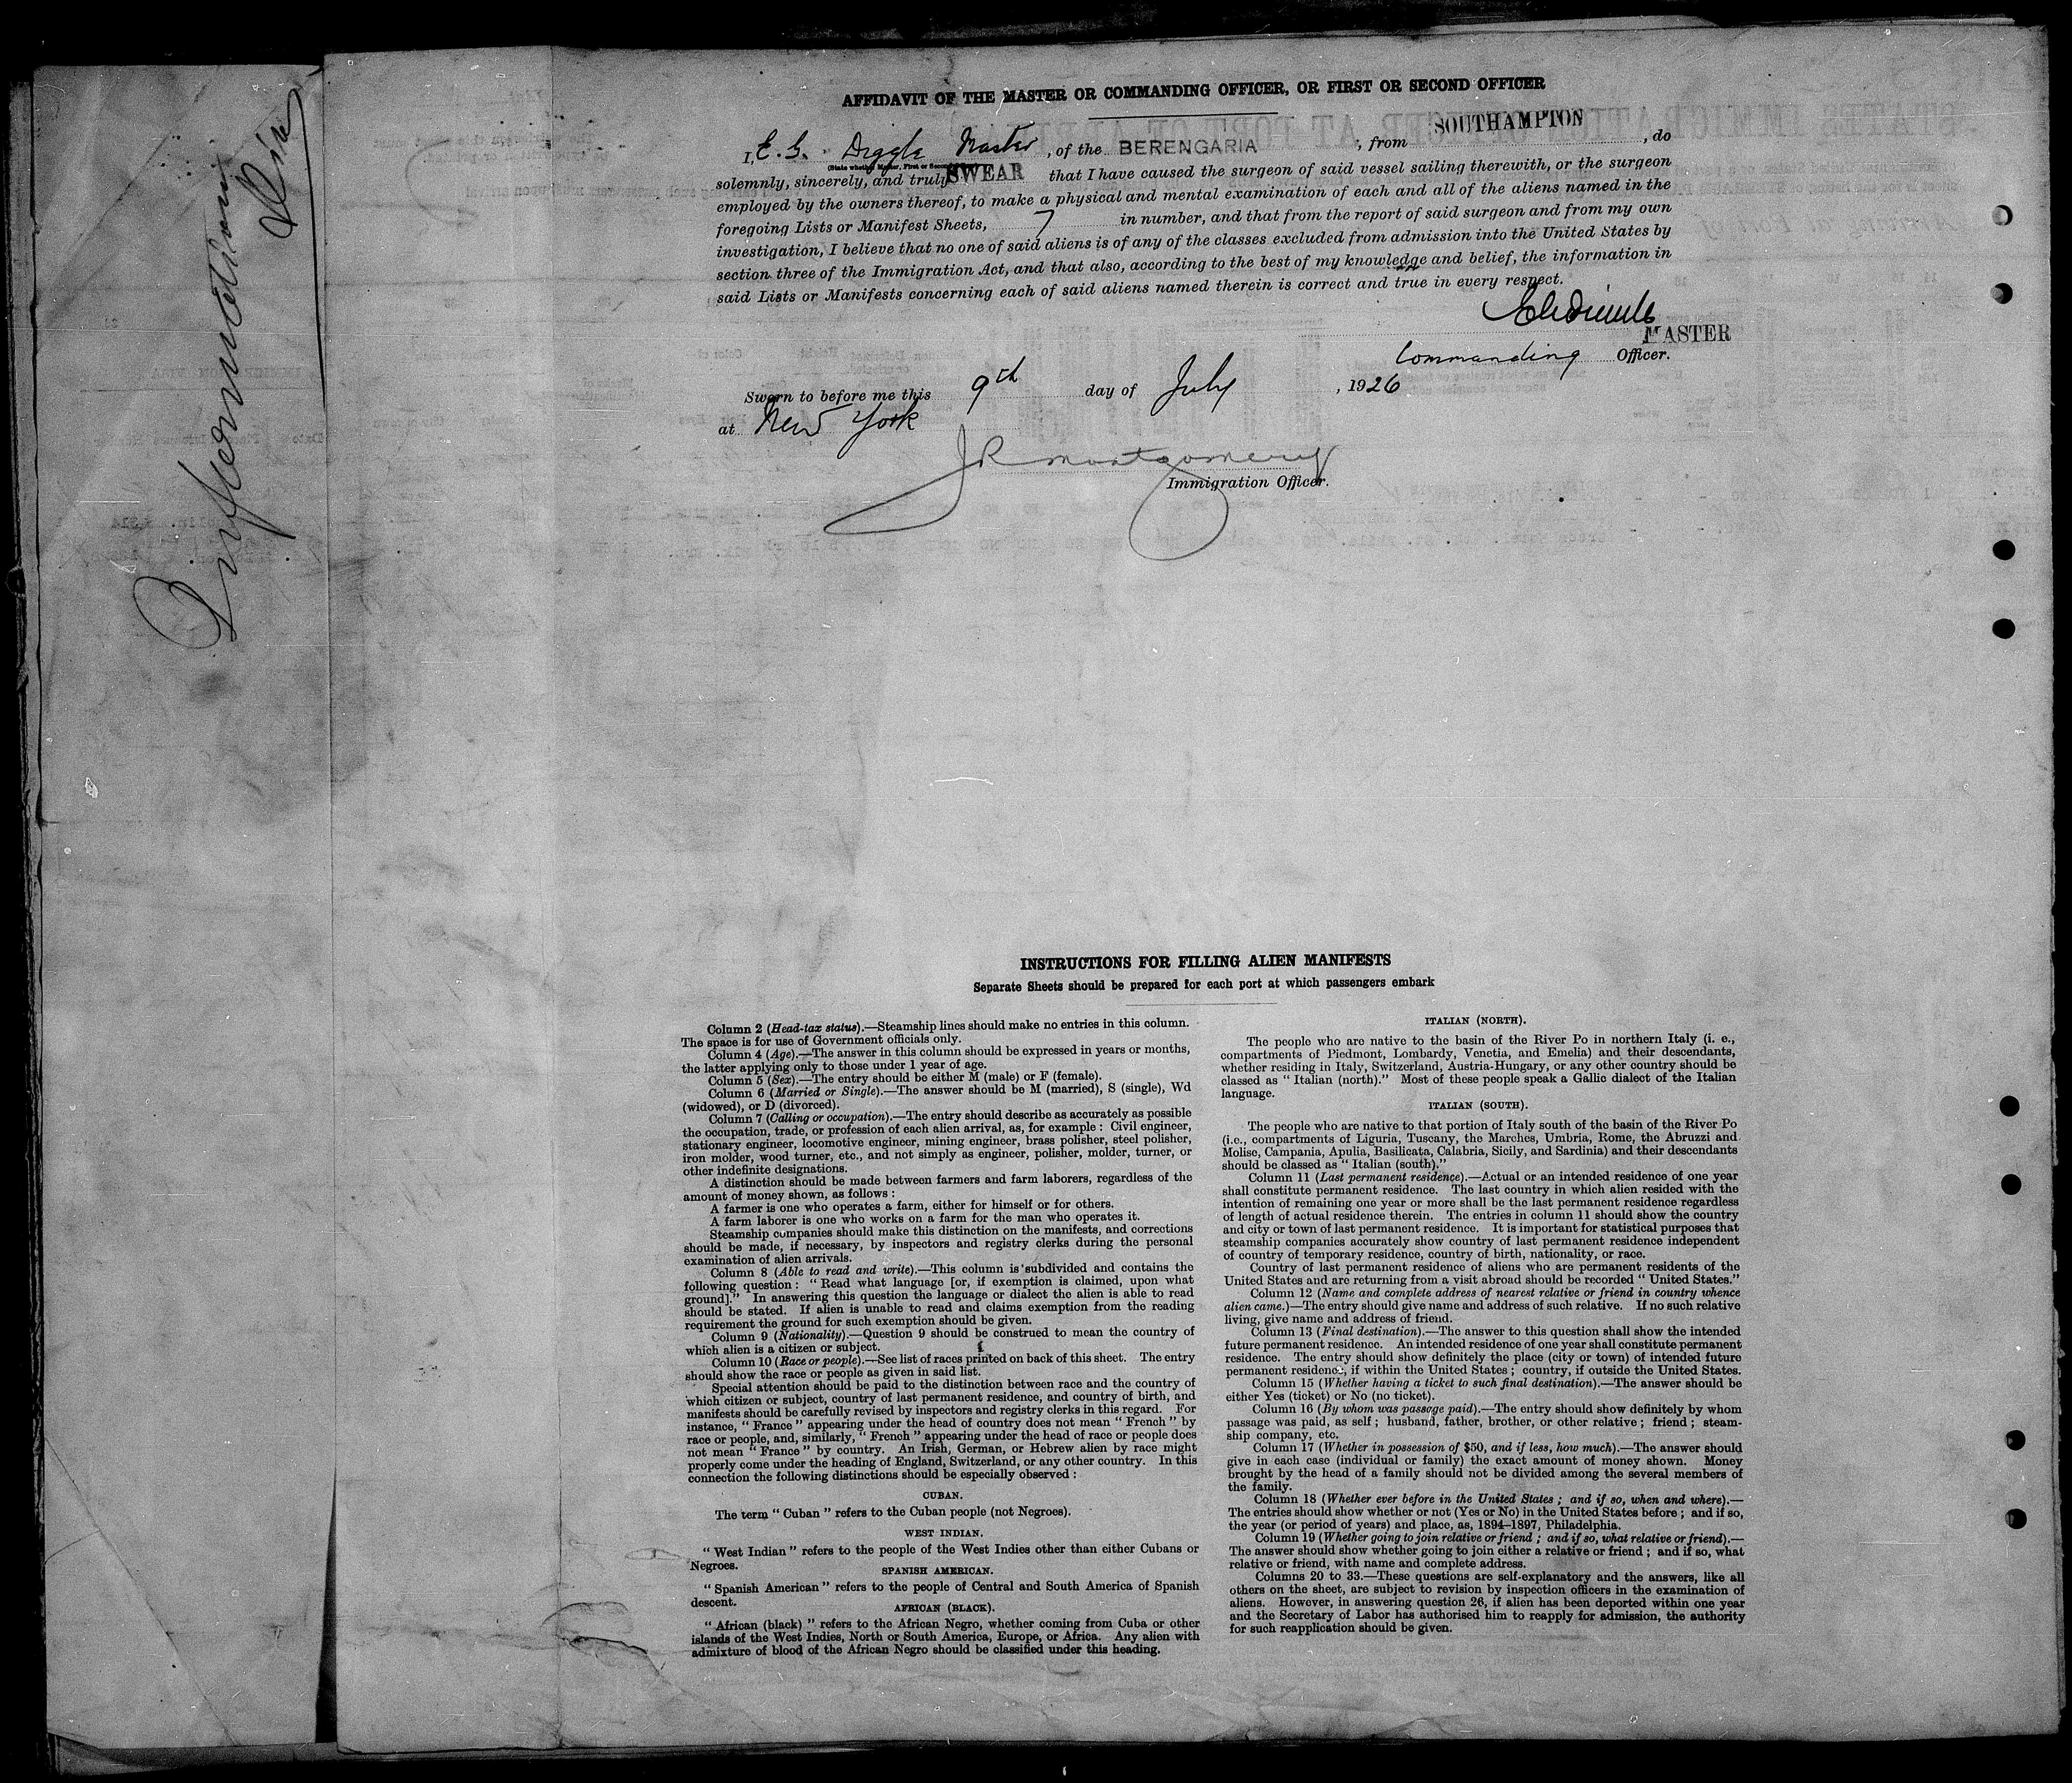 AFFIDAVIT OF THE MASTER OR COMMANDING OFFICER, OR FIRST OR SECOND OFFICER
I, E. G. Diggle Master, of the BERENGARIA, from SOUTHAMPTON, do
(State whether Master, First or Second
solemnly, sincerely, and truly SWEAR that I have caused the surgeon of said vessel sailing therewith, or the surgeon
employed by the owners thereof, to make a physical and mental examination of each and all of the aliens named in the
foregoing Lists or Manifest Sheets, 7 in number, and that from the report of said surgeon and from my own
investigation, I believe that no one of said aliens is of any of the classes excluded from admission into the United States by
section three of the Immigration Act, and that also, according to the best of my knowledge and belief, the information in
said Lists or Manifests concerning each of said aliens named therein is correct and true in every respect.
MASTER
Commanding Officer.
Sworn to before me this 9th day of July, 1926
at New York
J R Montgomery
Immigration Officer.
INSTRUCTIONS FOR FILLING ALIEN MANIFESTS
Separate Sheets should be prepared for each port at which passengers embark
Column 2 (Head-tax status).—Steamship lines should make no entries in this column.
The space is for use of Government officials only.
Column 4 (Age).—The answer in this column should be expressed in years or months,
the latter applying only to those under 1 year of age.
Column 5 (Sex).—The entry should be either M (male) or F (female).
Column 6 (Married or Single).—The answer should be M (married), S (single), Wd
(widowed), or D (divorced).
Column 7 (Calling or occupation).—The entry should describe as accurately as possible
the occupation, trade, or profession of each alien arrival, as, for example : Civil engineer,
stationary engineer, locomotive engineer, mining engineer, brass polisher, steel polisher,
iron molder, wood turner, etc., and not simply as engineer, polisher, molder, turner, or
other indefinite designations.
A distinction should be made between farmers and farm laborers, regardless of the
amount of money shown, as follows :
A farmer is one who operates a farm, either for himself or for others.
A farm laborer is one who works on a farm for the man who operates it.
Steamship companies should make this distinction on the manifests, and corrections
should be made, if necessary, by inspectors and registry clerks during the personal
examination of alien arrivals.
Column 8 (Able to read and write).—This column is subdivided and contains the
following question : " Read what language [or, if exemption is claimed, upon what
ground]." In answering this question the language or dialect the alien is able to read
should be stated. If alien is unable to read and claims exemption from the reading
requirement the ground for such exemption should be given.
Column 9 (Nationality).—Question 9 should be construed to mean the country of
which alien is a citizen or subject.
Column 10 (Race or people).—See list of races printed on back of this sheet. The entry
should show the race or people as given in said list.
Special attention should be paid to the distinction between race and the country of
which citizen or subject, country of last permanent residence, and country of birth, and
manifests should be carefully revised by inspectors and registry clerks in this regard. For
instance, " France " appearing under the head of country does not mean " French " by
race or people, and, similarly, " French " appearing under the head of race or people does
not mean " France " by country. An Irish, German, or Hebrew alien by race might
properly come under the heading of England, Switzerland, or any other country. In this
connection the following distinctions should be especially observed :
CUBAN.
The term " Cuban " refers to the Cuban people (not Negroes).
WEST INDIAN.
" West Indian " refers to the people of the West Indies other than either Cubans or
Negroes.
SPANISH AMERICAN.
" Spanish American " refers to the people of Central and South America of Spanish
descent.
AFRICAN (BLACK).
" African (black) " refers to the African Negro, whether coming from Cuba or other
islands of the West Indies, North or South America, Europe, or Africa. Any alien with
admixture of blood of the African Negro should be classified under this heading.
ITALIAN (NORTH).
The people who are native to the basin of the River Po in northern Italy (i. e.,
compartments of Piedmont, Lombardy, Venetia, and Emelia) and their descendants,
whether residing in Italy, Switzerland, Austria-Hungary, or any other country should be
classed as " Italian (north)." Most of these people speak a Gallic dialect of the Italian
language.
ITALIAN (SOUTH).
The people who are native to that portion of Italy south of the basin of the River Po
(i.e., compartments of Liguria, Tuscany, the Marches, Umbria, Rome, the Abruzzi and
Molise, Campania, Apulia, Basilicata, Calabria, Sicily, and Sardinia) and their descendants
should be classed as " Italian (south)."
Column 11 (Last permanent residence).—Actual or an intended residence of one year
shall constitute permanent residence. The last country in which alien resided with the
intention of remaining one year or more shall be the last permanent residence regardless
of length of actual residence therein. The entries in column 11 should show the country
and city or town of last permanent residence. It is important for statistical purposes that
steamship companies accurately show country of last permanent residence independent
of country of temporary residence, country of birth, nationality, or race.
Country of last permanent residence of aliens who are permanent residents of the
United States and are returning from a visit abroad should be recorded " United States."
Column 12 (Name and complete address of nearest relative or friend in country whence
alien came.)—The entry should give name and address of such relative. If no such relative
living, give name and address of friend.
Column 13 (Final destination).—The answer to this question shall show the intended
future permanent residence. An intended residence of one year shall constitute permanent
residence. The entry should show definitely the place (city or town) of intended future
permanent residence, if within the United States ; country, if outside the United States.
Column 15 (Whether having a ticket to such final destination).—The answer should be
either Yes (ticket) or No (no ticket).
Column 16 (By whom was passage paid).—The entry should show definitely by whom
passage was paid, as self ; husband, father, brother, or other relative ; friend ; steam-
ship company, etc.
Column 17 (Whether in possession of $50, and if less, how much).—The answer should
give in each case (individual or family) the exact amount of money shown. Money
brought by the head of a family should not be divided among the several members of
the family.
Column 18 (Whether ever before in the United States ; and if so, when and where).—
The entries should show whether or not (Yes or No) in the United States before ; and if so,
the year (or period of years) and place, as, 1894–1897, Philadelphia.
Column 19 (Whether going to join relative or friend ; and if so, what relative or friend).—
The answer should show whether going to join either a relative or friend ; and if so, what
relative or friend, with name and complete address.
Columns 20 to 33.—These questions are self-explanatory and the answers, like all
others on the sheet, are subject to revision by inspection officers in the examination of
aliens. However, in answering question 26, if alien has been deported within one year
and the Secretary of Labor has authorised him to reapply for admission, the authority
for such reapplication should be given.